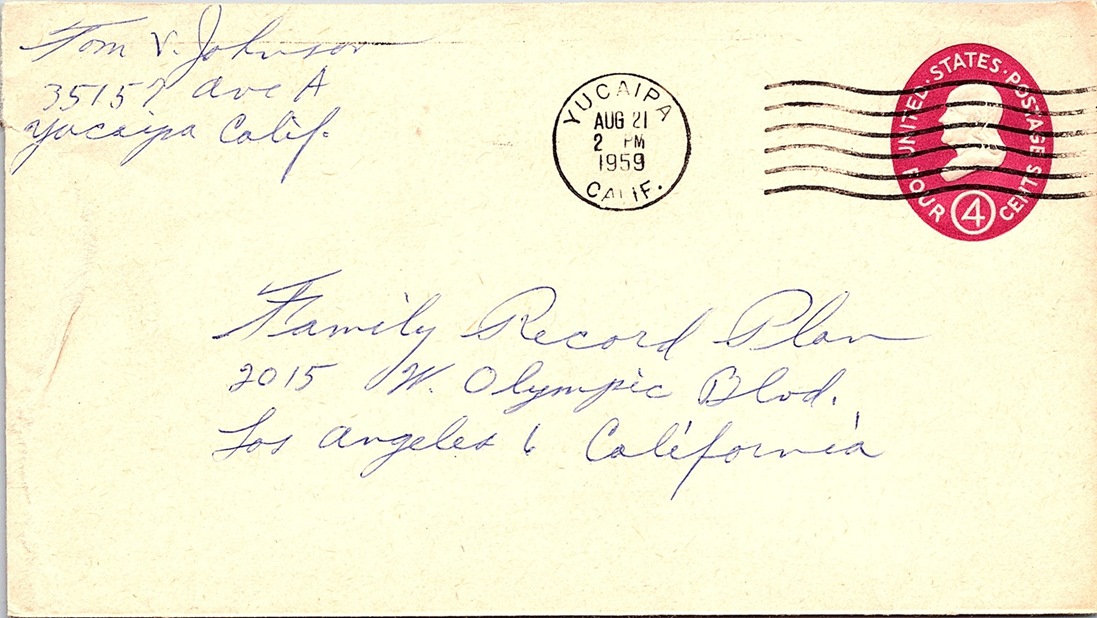 Tom V. Johnson
35157 Ave A
Yucaipa Calif.
YUCAIPA
AUG 21
2 PM
1959
CALIF.
UNITED · STATES · POSTAGE
FOUR 4 CENTS
Family Record Plan
2015 W. Olympic Blvd.
Los Angeles 6 California